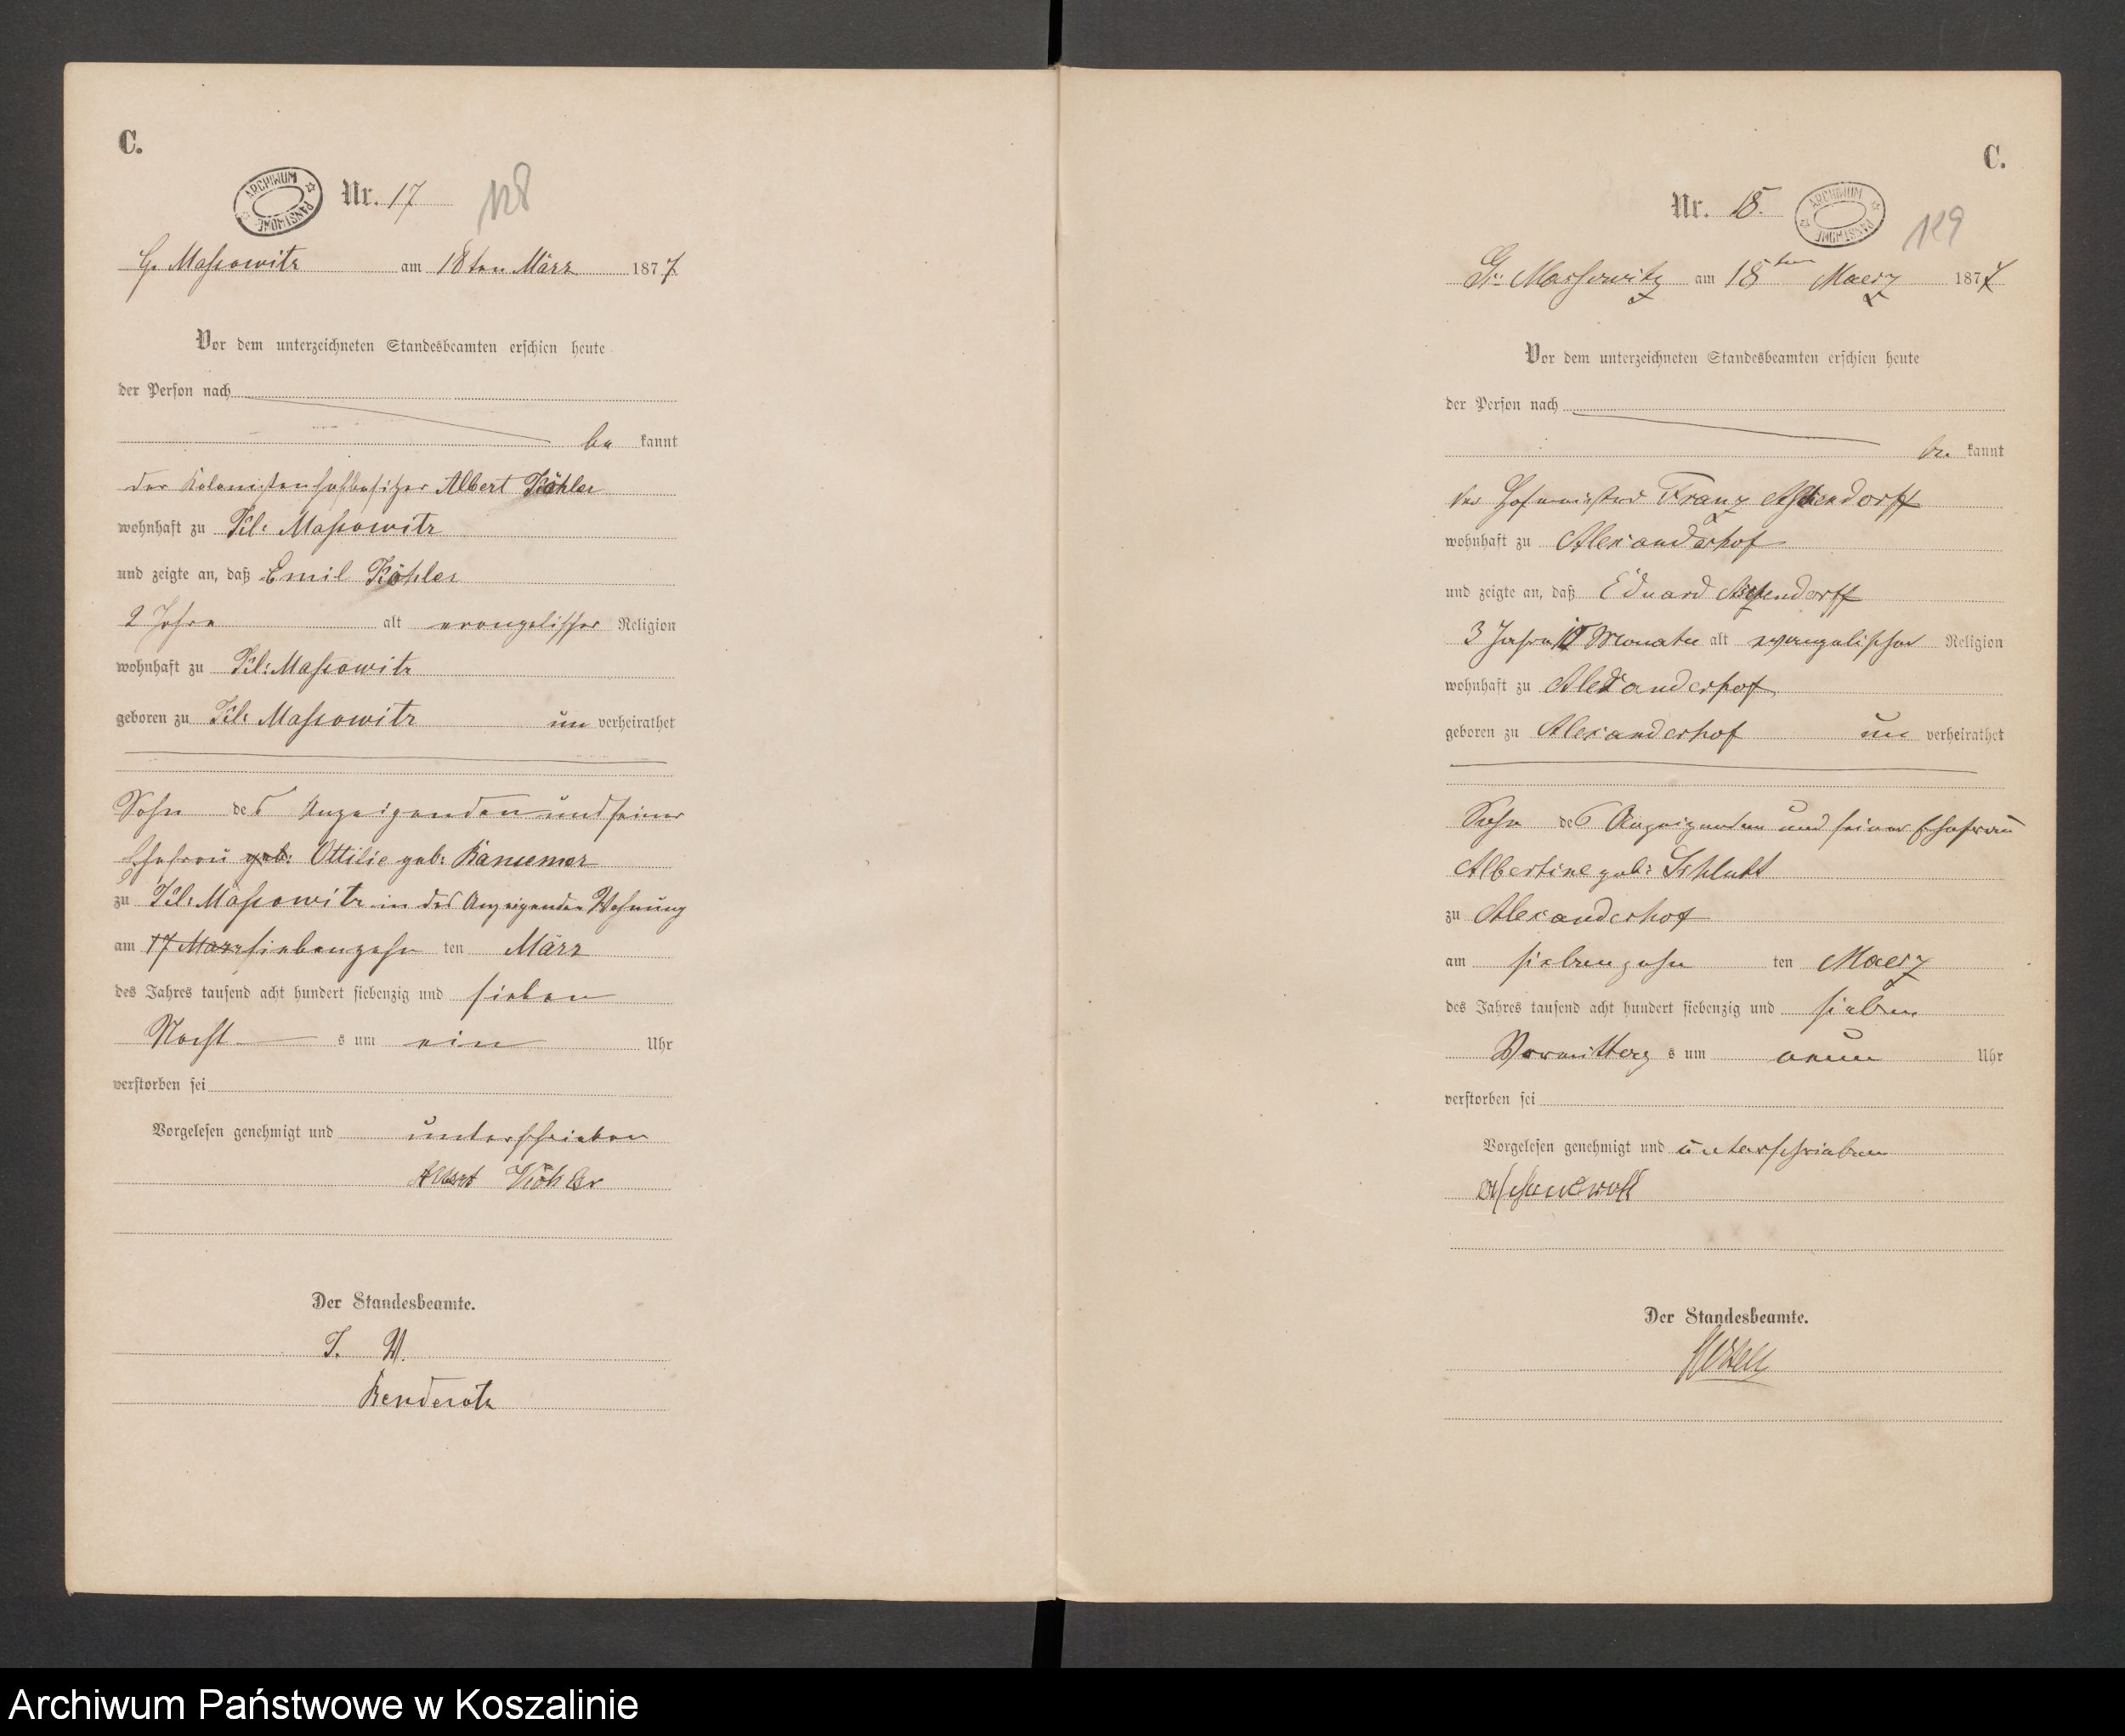 C.
ARCHIWUM PAŃSTWOWE
Nr. 17
128
G. Massowitz am 18ten März 1877
Vor dem unterzeichneten Standesbeamten erschien heute
der Person nach
be kannt
der Kolonistenhofbesitzer Albert Köhler
wohnhaft zu Kl: Massowitz
und zeigte an, daß Emil Köhler
2 Jahre alt evangelischer Religion
wohnhaft zu Kl: Massowitz
geboren zu Kl: Massowitz un verheirathet
Sohn des Anzeigenden und seiner
Ehefrau geb: Ottilie geb: Bansemer
zu Kl: Massowitz in des Anzeigenden Wohnung
am 17 März siebenzehn ten März
des Jahres tausend acht hundert siebenzig und sieben
Nacht s um ein Uhr
verstorben sei
Vorgelesen genehmigt und unterschrieben
Albert Köhler
Der Standesbeamte.
I. V.
C.
Nr. 18.
ARCHIWUM PAŃSTWOWE
129
Gr: Massowitz am 18ten Maerz 1877
Vor dem unterzeichneten Standesbeamten erschien heute
der Person nach
be kannt
der Hofmeister Franz
wohnhaft zu Alexanderhof
und zeigte an, daß Eduard
3 Jahre Monate alt evangelischer Religion
wohnhaft zu Alexanderhof
geboren zu Alexanderhof un verheirathet
Sohn des Anzeigenden und seiner Ehefrau
Albertine geb:
zu Alexanderhof
am siebenzehn ten Maerz
des Jahres tausend acht hundert siebenzig und sieben
Vormittag s um neun Uhr
verstorben sei
Vorgelesen genehmigt und unterschrieben
Der Standesbeamte.
Archiwum Państwowe w Koszalinie